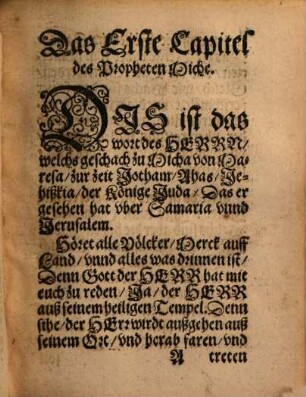 Das Erste Capitel
des Propheten Miche.
DIS ist das
wort des HERRN/
welchs geschach zu Micha von Ma-
resa/ zur zeit Jotham/ Ahas/ Je-
hißkia/ der Könige Juda/ Das er
gesehen hat vber Samaria vnnd
Jerusalem.
Höret alle Völcker/ Merck auff
Land/ vnnd alles was drinnen ist/
Denn Gott der HERR hat mit
euch zu reden/ Ja/ der HERR
auß seinem heiligen Tempel. Denn
sihe/ der HErr wirdt außgehen auß
seinem Ort/ vnd herab faren/ vnd
A treten